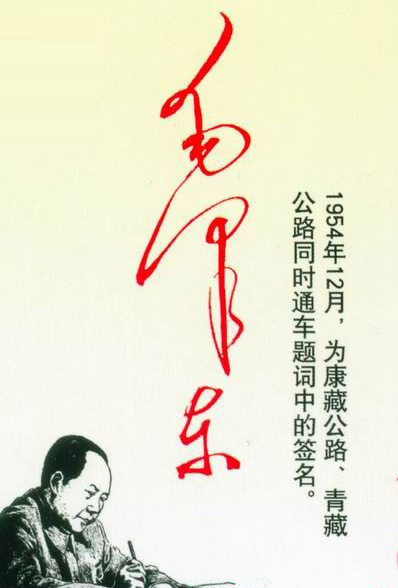 毛泽东
1954年12月，为康藏公路、青藏
公路同时通车题词中的签名。